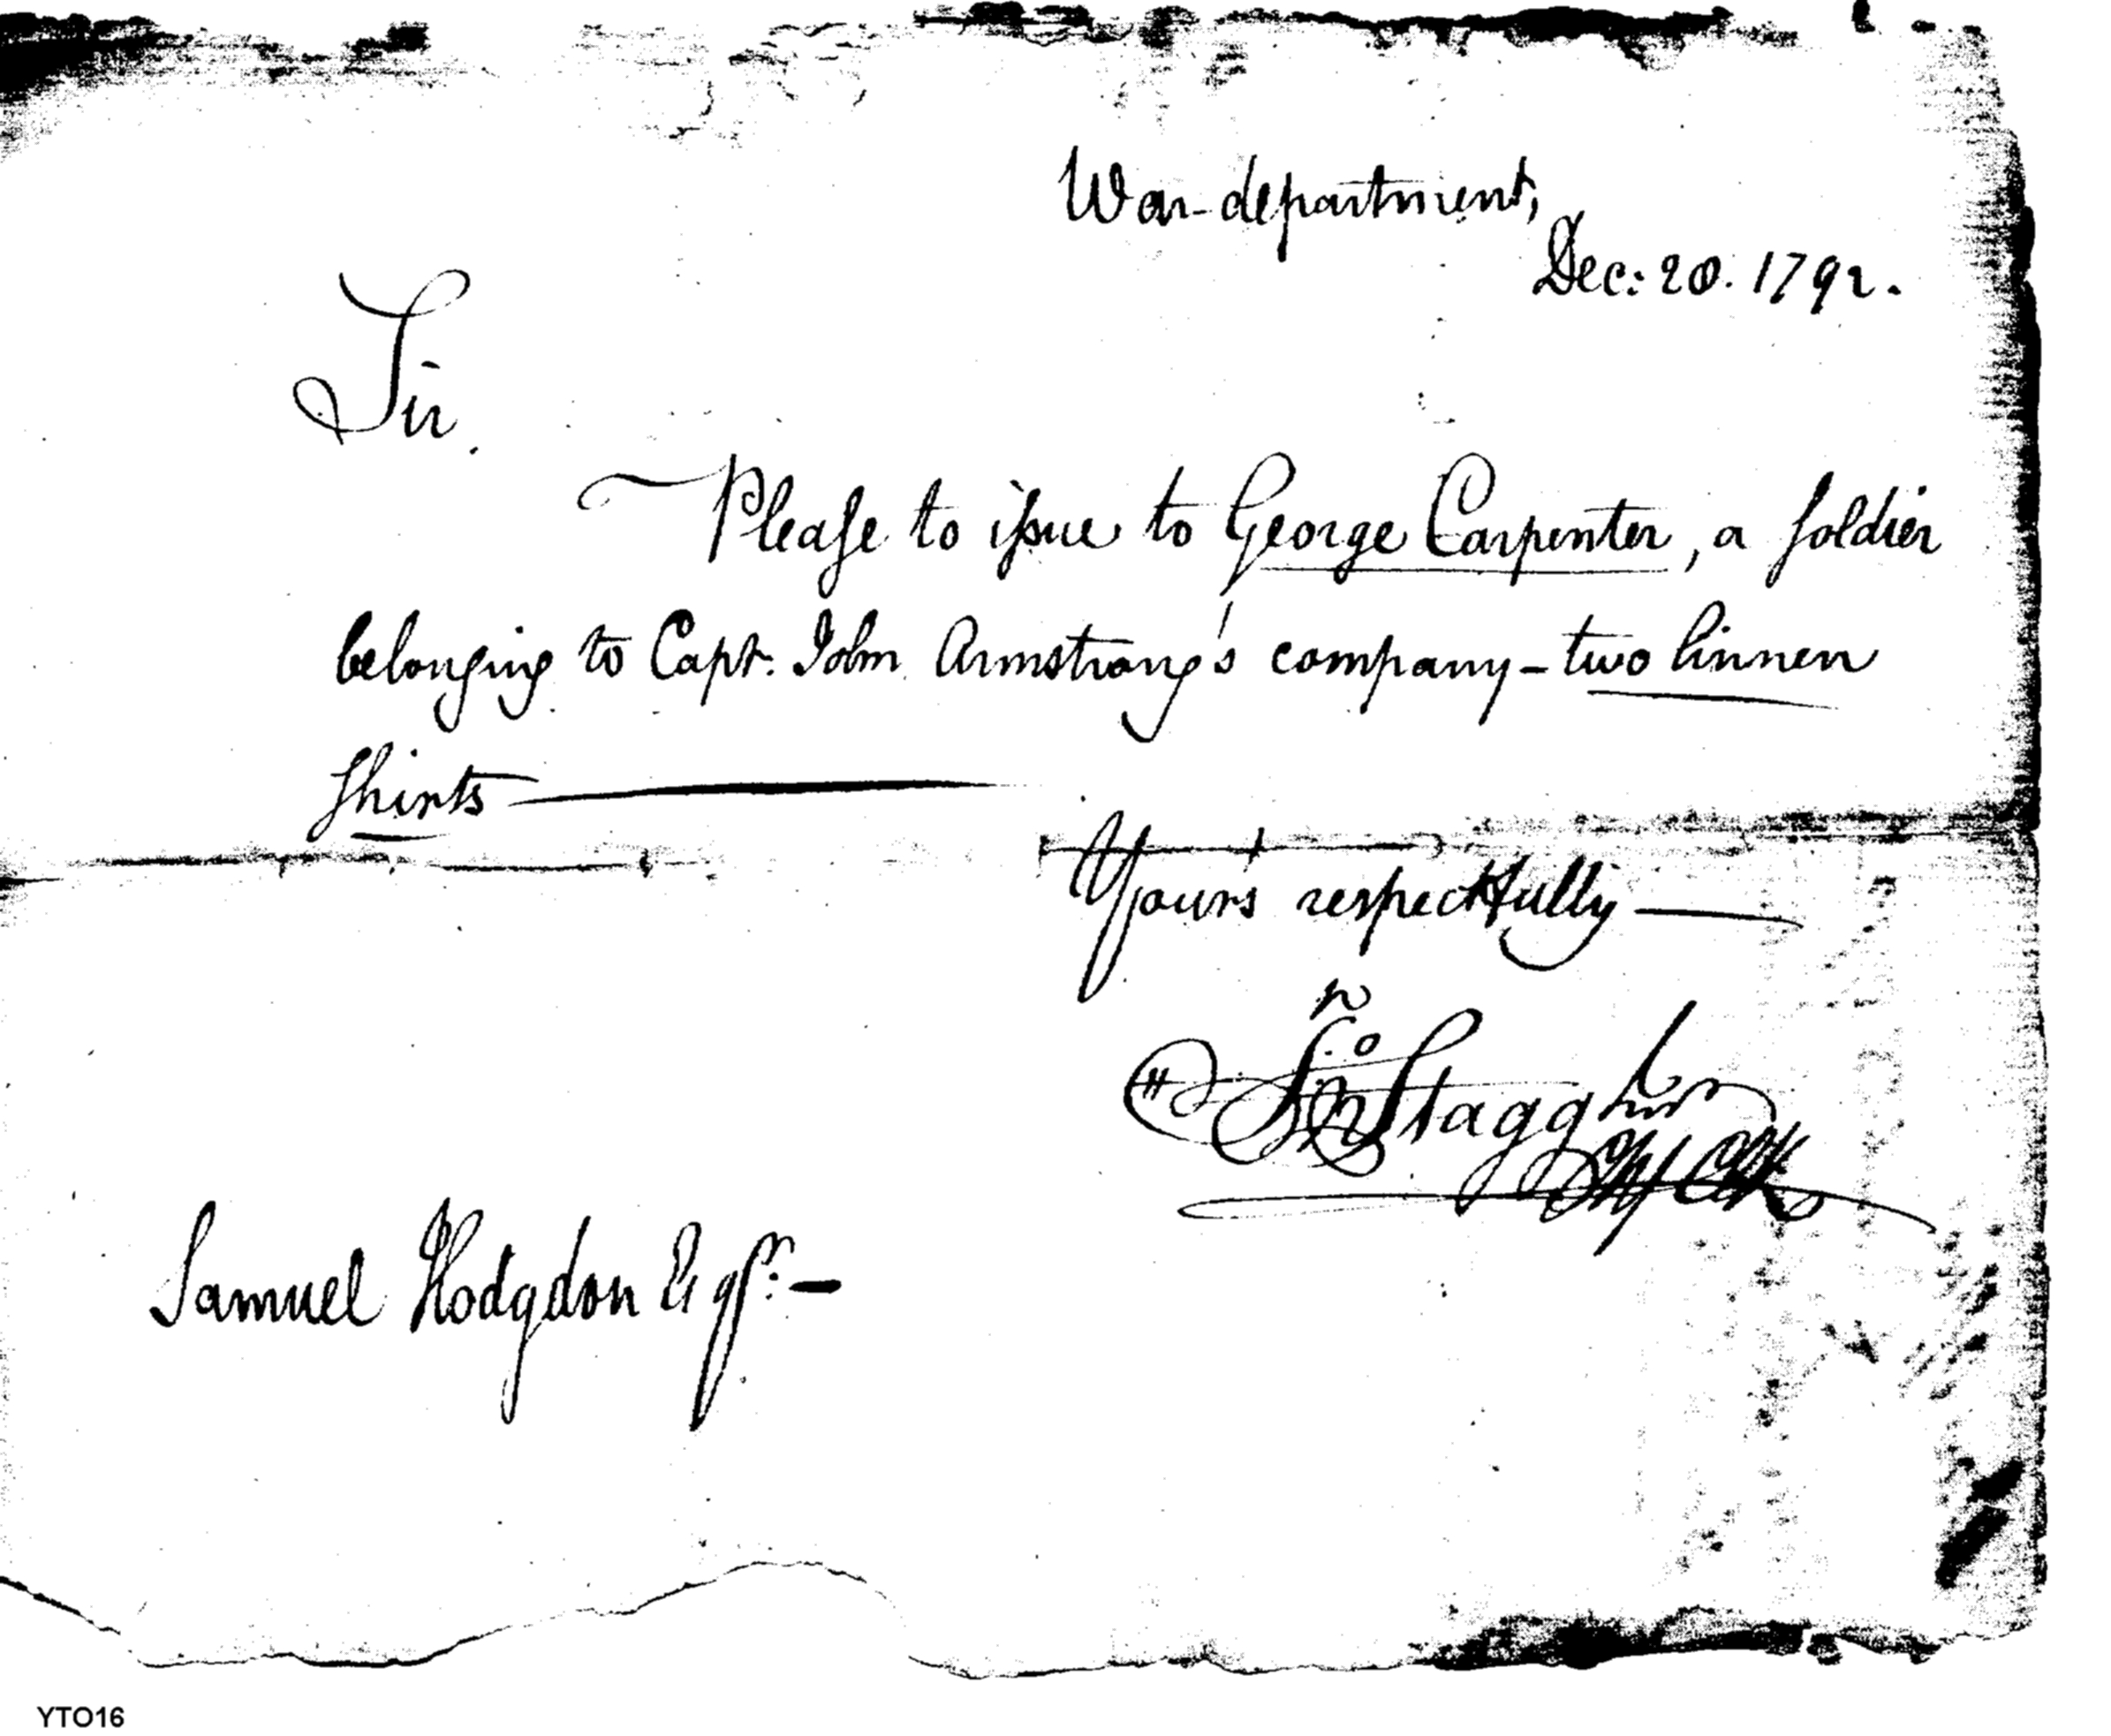 War department,
Dec: 20. 1792.
Sir.
Pleaſe to iſsue to George Carpenter, a ſoldier
belonging to Capt. John Armstrong's company – two linnen
ſhirts
Yours respectfully
Jno Stagg Junr
Chf Clk
Samuel Hodgdon Esqr. –
YTO16